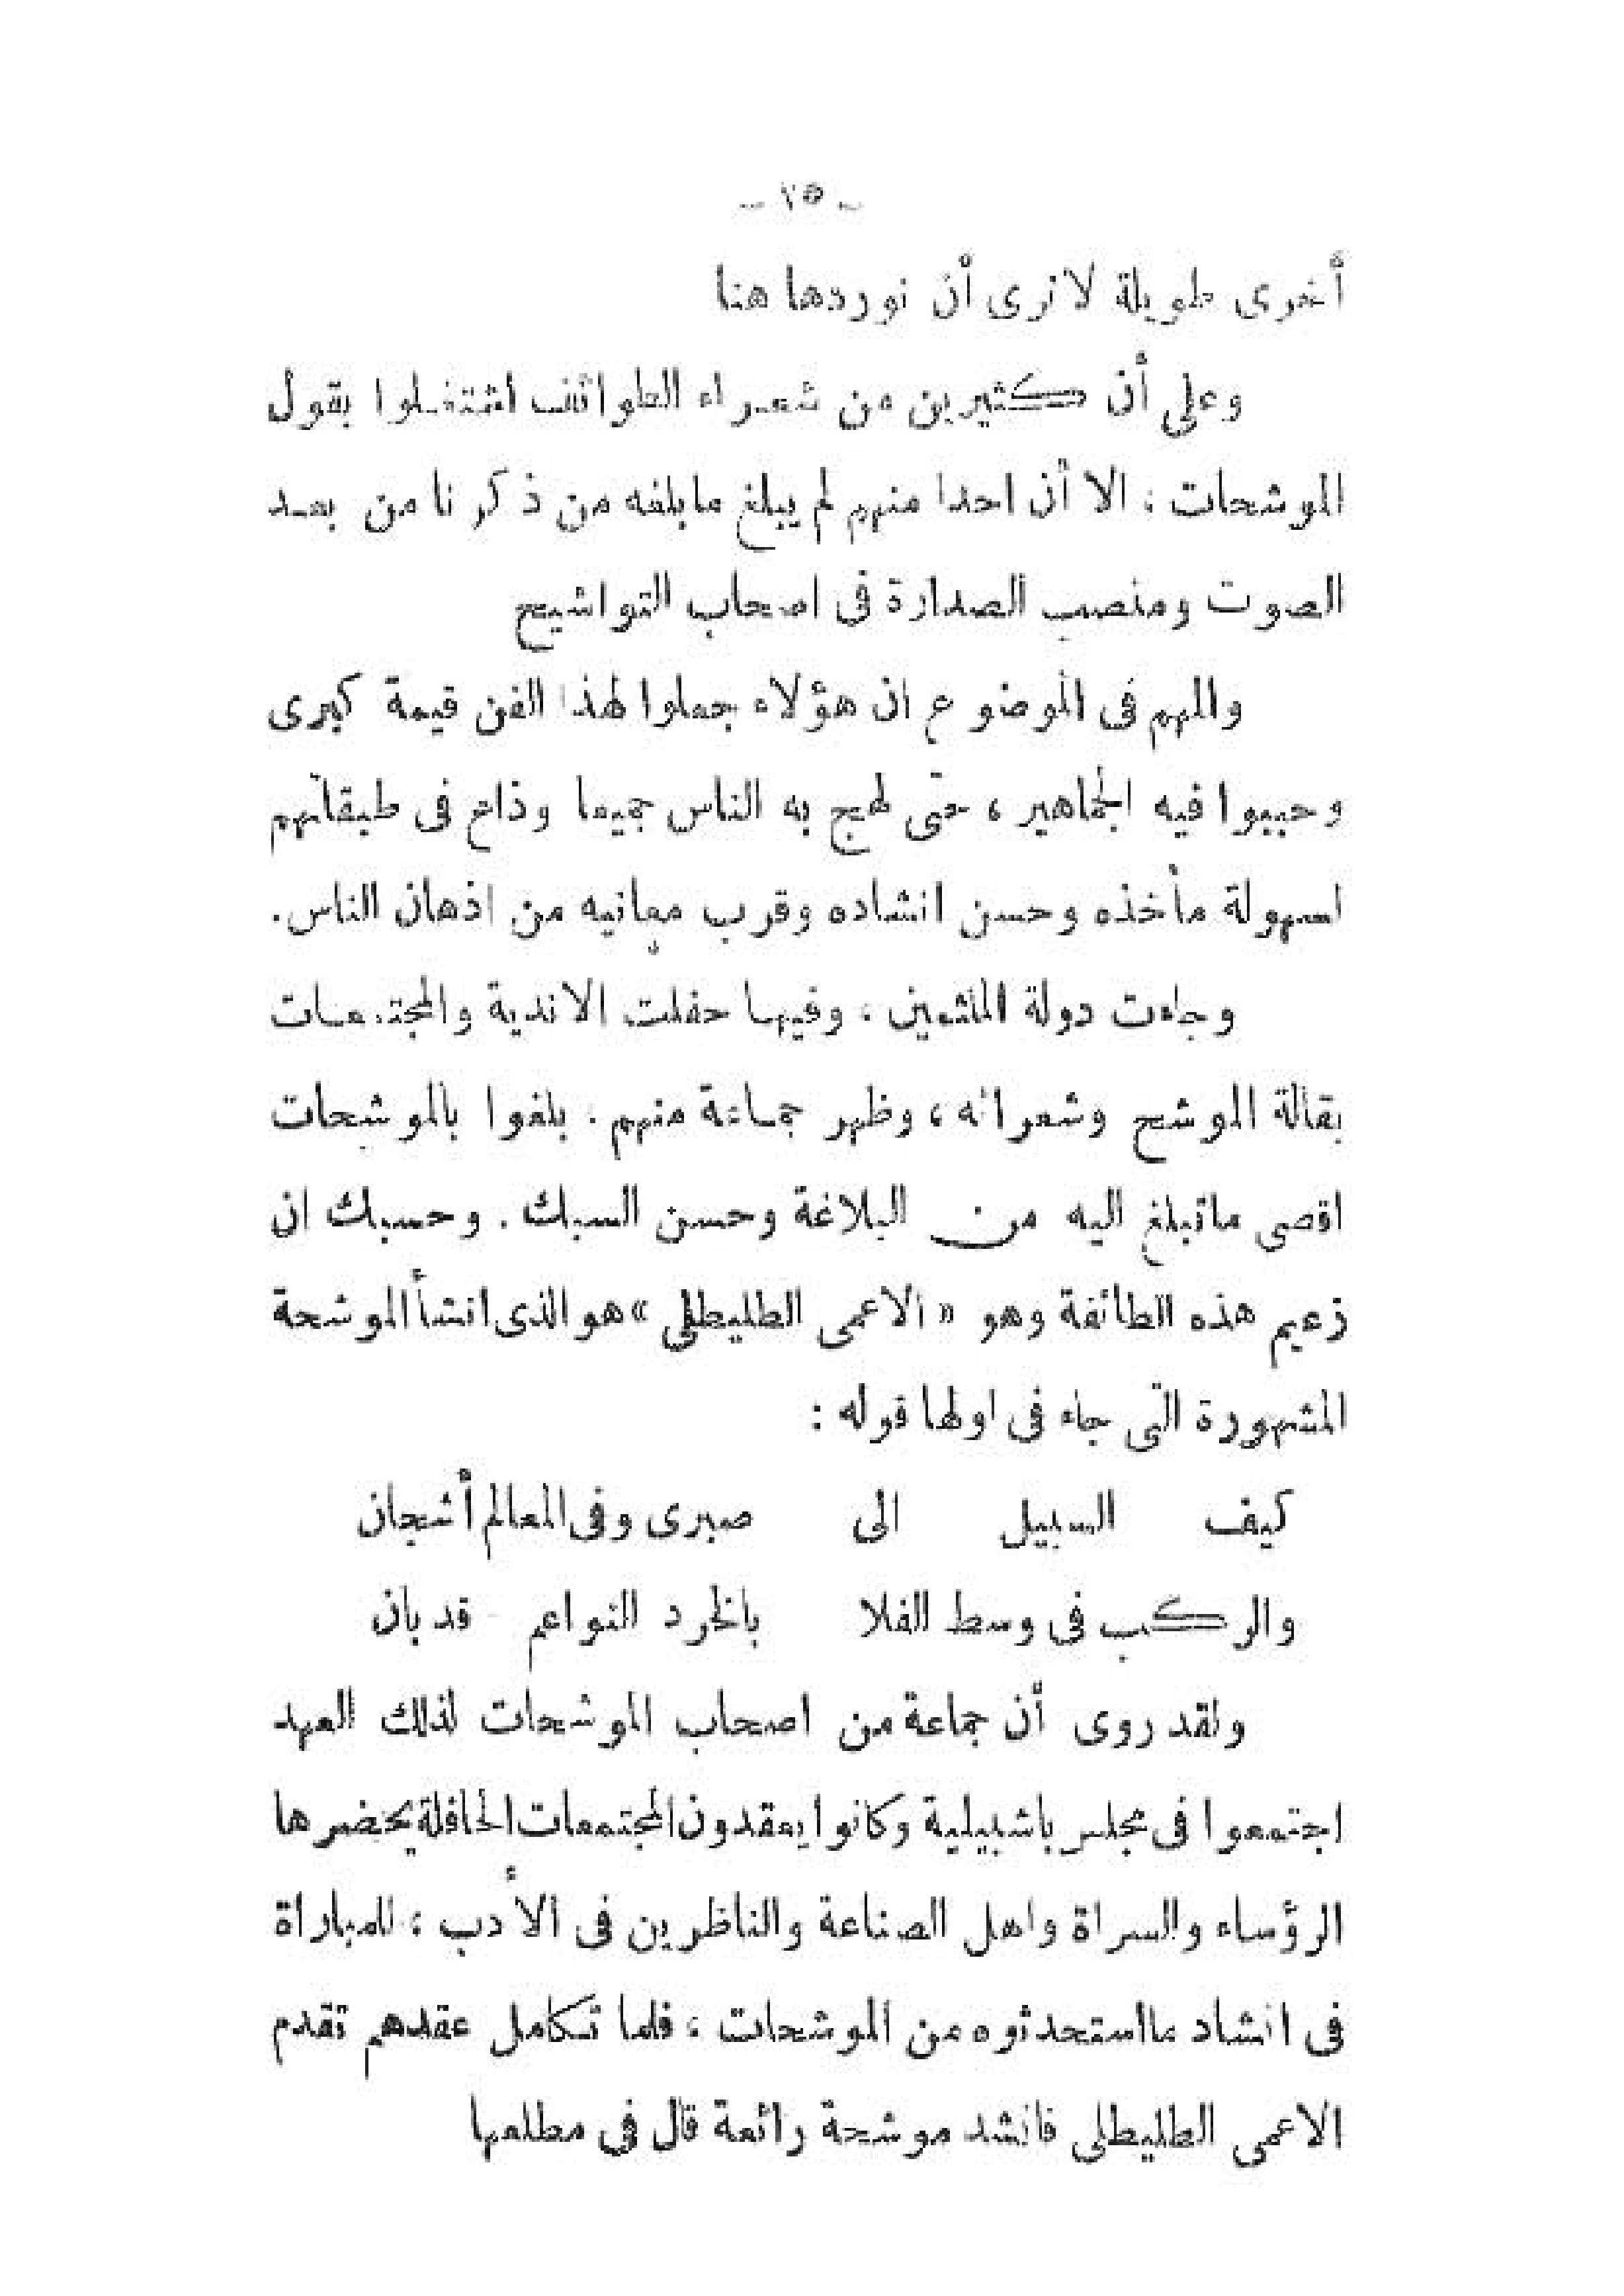 ـ ٢٥ ـ
أخرى طويلة لانرى أن نوردها هنا
وعلى أن كثيرين من شعراء الطوائف اشتغلوا بقول
الموشحات ، الا أن احدا منهم لم يبلغ مابلغه من ذكرنا من بعد
الصوت ومنصب الصدارة فى اصحاب التواشيح
والمهم فى الموضوع ان هؤلاء جعلوا لهذا الفن قيمة كبرى
وحببوا فيه الجماهير ، حتى لهج به الناس جميعا وذاع فى طبقاتهم
لسهولة مأخذه وحسن انشاده وقرب معانيه من اذهان الناس.
وجاءت دولة الملثمين ، وفيها حفلت الاندية والمجتمعات
بقالة الموشح وشعرائه ، وظهر جماعة منهم . بلغوا بالموشحات
اقصى ماتبلغ اليه من البلاغة وحسن السبك . وحسبك ان
زعيم هذه الطائفة وهو « الاعمى الطليطلي » هو الذى انشأ الموشحة
المشهورة التى جاء فى اولها قوله :
كيف السبيل الى صبرى وفى المعالم أشجان
والركب فى وسط الفلا بالخرد النواعم قد بان
ولقد روى أن جماعة من اصحاب الموشحات لذلك العهد
اجتمعوا فى مجلس باشبيلية وكانوا يعقدون المجتمعات الحافلة يحضرها
الرؤساء والسراة واهل الصناعة والناظرين فى الأدب ، للمباراة
فى انشاد مااستحدثوه من الموشحات ، فلما تكامل عقدهم تقدم
الاعمى الطليطلى فانشد موشحة رائعة قال فى مطلعها